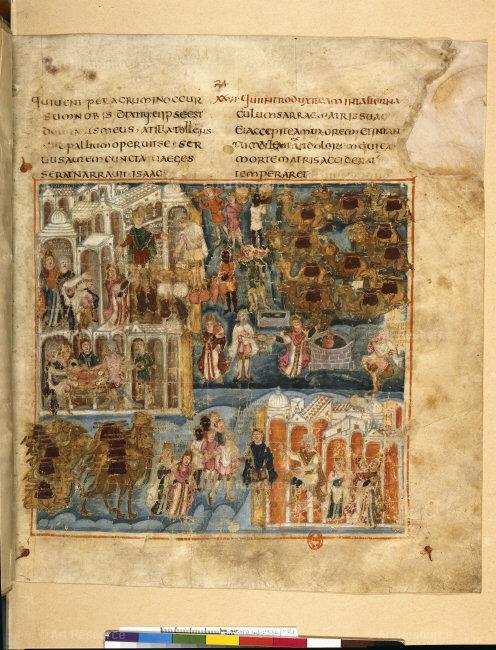 QUI UENIT PER AGRUM IN OCCUR
SUM NOBIS DIXITQ· EI IPSE EST
DOMINUS MEUS · AT ILLA TOLLENS
PALLIUM OPERUIT SE · SER
UUS AUTEM CUNCTA GES
SERAT NARRAUIT ISAAC
XXVI· QUI INTRODUXIT EAM IN TABERNA
CULUM SARRAE MATRIS SUAE
ET ACCEPIT EAM UXOREM ET IN TAN
TUM DILEXIT UT DOLOREM QUI EX
MORTE MATRIS ACCIDERAT
TEMPERARET
© Art Resource